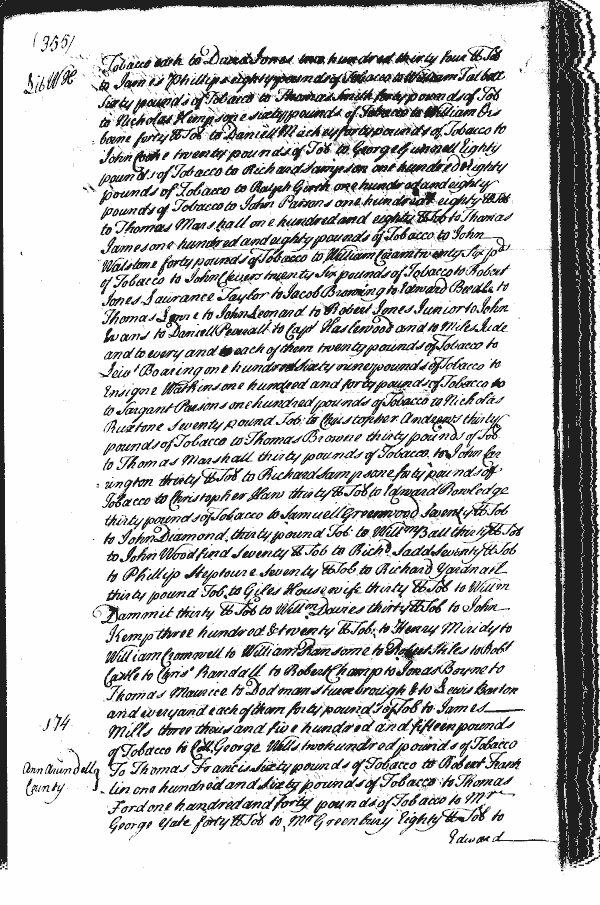 (355)
Lib W H
Tobacco each to David Jones two hundred thirty four lb Tob
to James Phillips eighty pounds of Tobacco to William Talbott
Sixty pounds of Tobacco to Thomas Smith forty pounds of Tob
to Nicholas Hempsone sixty pounds of Tobacco to William Ors
borne forty lb Tob to Daniell Mackey forty pounds of Tobacco to
John Cooke twenty pounds of Tob to George Gunnell Eighty
pounds of Tobacco to Richard Sampson one hundred & eighty
pounds of Tobacco to Ralph Girth one hundred and eighty
pounds of Tobacco to John Parsons one hundred & eighty lb Tob
to Thomas Marshall one hundred and eighty lb Tob to Thomas
James one hundred and eighty pounds of Tobacco to John
Walstone forty pounds of Tobacco to William twenty Six pds
of Tobacco to John twenty Six pounds of Tobacco to Robert
Jones Laurance Taylor to Jacob Browning to Edward Beedle to
Thomas to John Leonard to Robert Jones Junior to John
Evans to Daniell to Capt Haslewood and to Miles Jude
and to every and to each of them twenty pounds of Tobacco to
Leiut Boaring one hundred Sixty nine pounds of Tobacco to
Ensigne Watkins one hundred and forty pounds of Tobacco to
to Sargant Parsons one hundred pounds of Tobacco to Nicholas
Ruxtone Seventy pound Tob: to Christopher Andrews thirty
pounds of Tobacco to Thomas Browne thirty pounds of Tob
to Thomas Marshall thirty pounds of Tobacco to John Er
rington thirty lb Tob to Richard Sampsone forty pounds of
Tobacco to Christopher thirty lb Tob to Edward Rowledge
thirty pounds of Tobacco to Samuell Greenwood Seventy lb Tob
to John Diamond, thirty pound Tob: to Willm Ball thirty lb Tob
to John Woodfind Seventy lb Tob to Richd Ladd Seventy lb Tob
to Phillip Steptowe Seventy lb Tob to Richard Yardnall
thirty pound Tob, to Giles Housewife thirty lb Tob to Willm
Dammit thirty lb Tob to Willm Davies thirty lb Tob to John
Kemp three hundred & twenty lb Tob: to Henry to
William Cromwell to William Ransome to Robert Hiles to Robt
Castle to Chrisr Randall to Robert Champ to Jonas Bowne to
Thomas Maurice to Dodman to Lewis Barton
and every and each of them forty pound of Tob to James
Mills three thousand five hundred and fifteen pounds
of Tobacco to Coll George Wells two hundred pounds of Tobacco
174
Ann Arundell
County
To Thomas Francis Sixty pounds of Tobacco to Robert Frank
lin one hundred and Sixty pounds of Tobacco to Thomas
Ford one hundred and forty pounds of Tobacco to Mr
George Yate forty lb Tob to Mr Greenbury Eighty lb Tob to
Edward